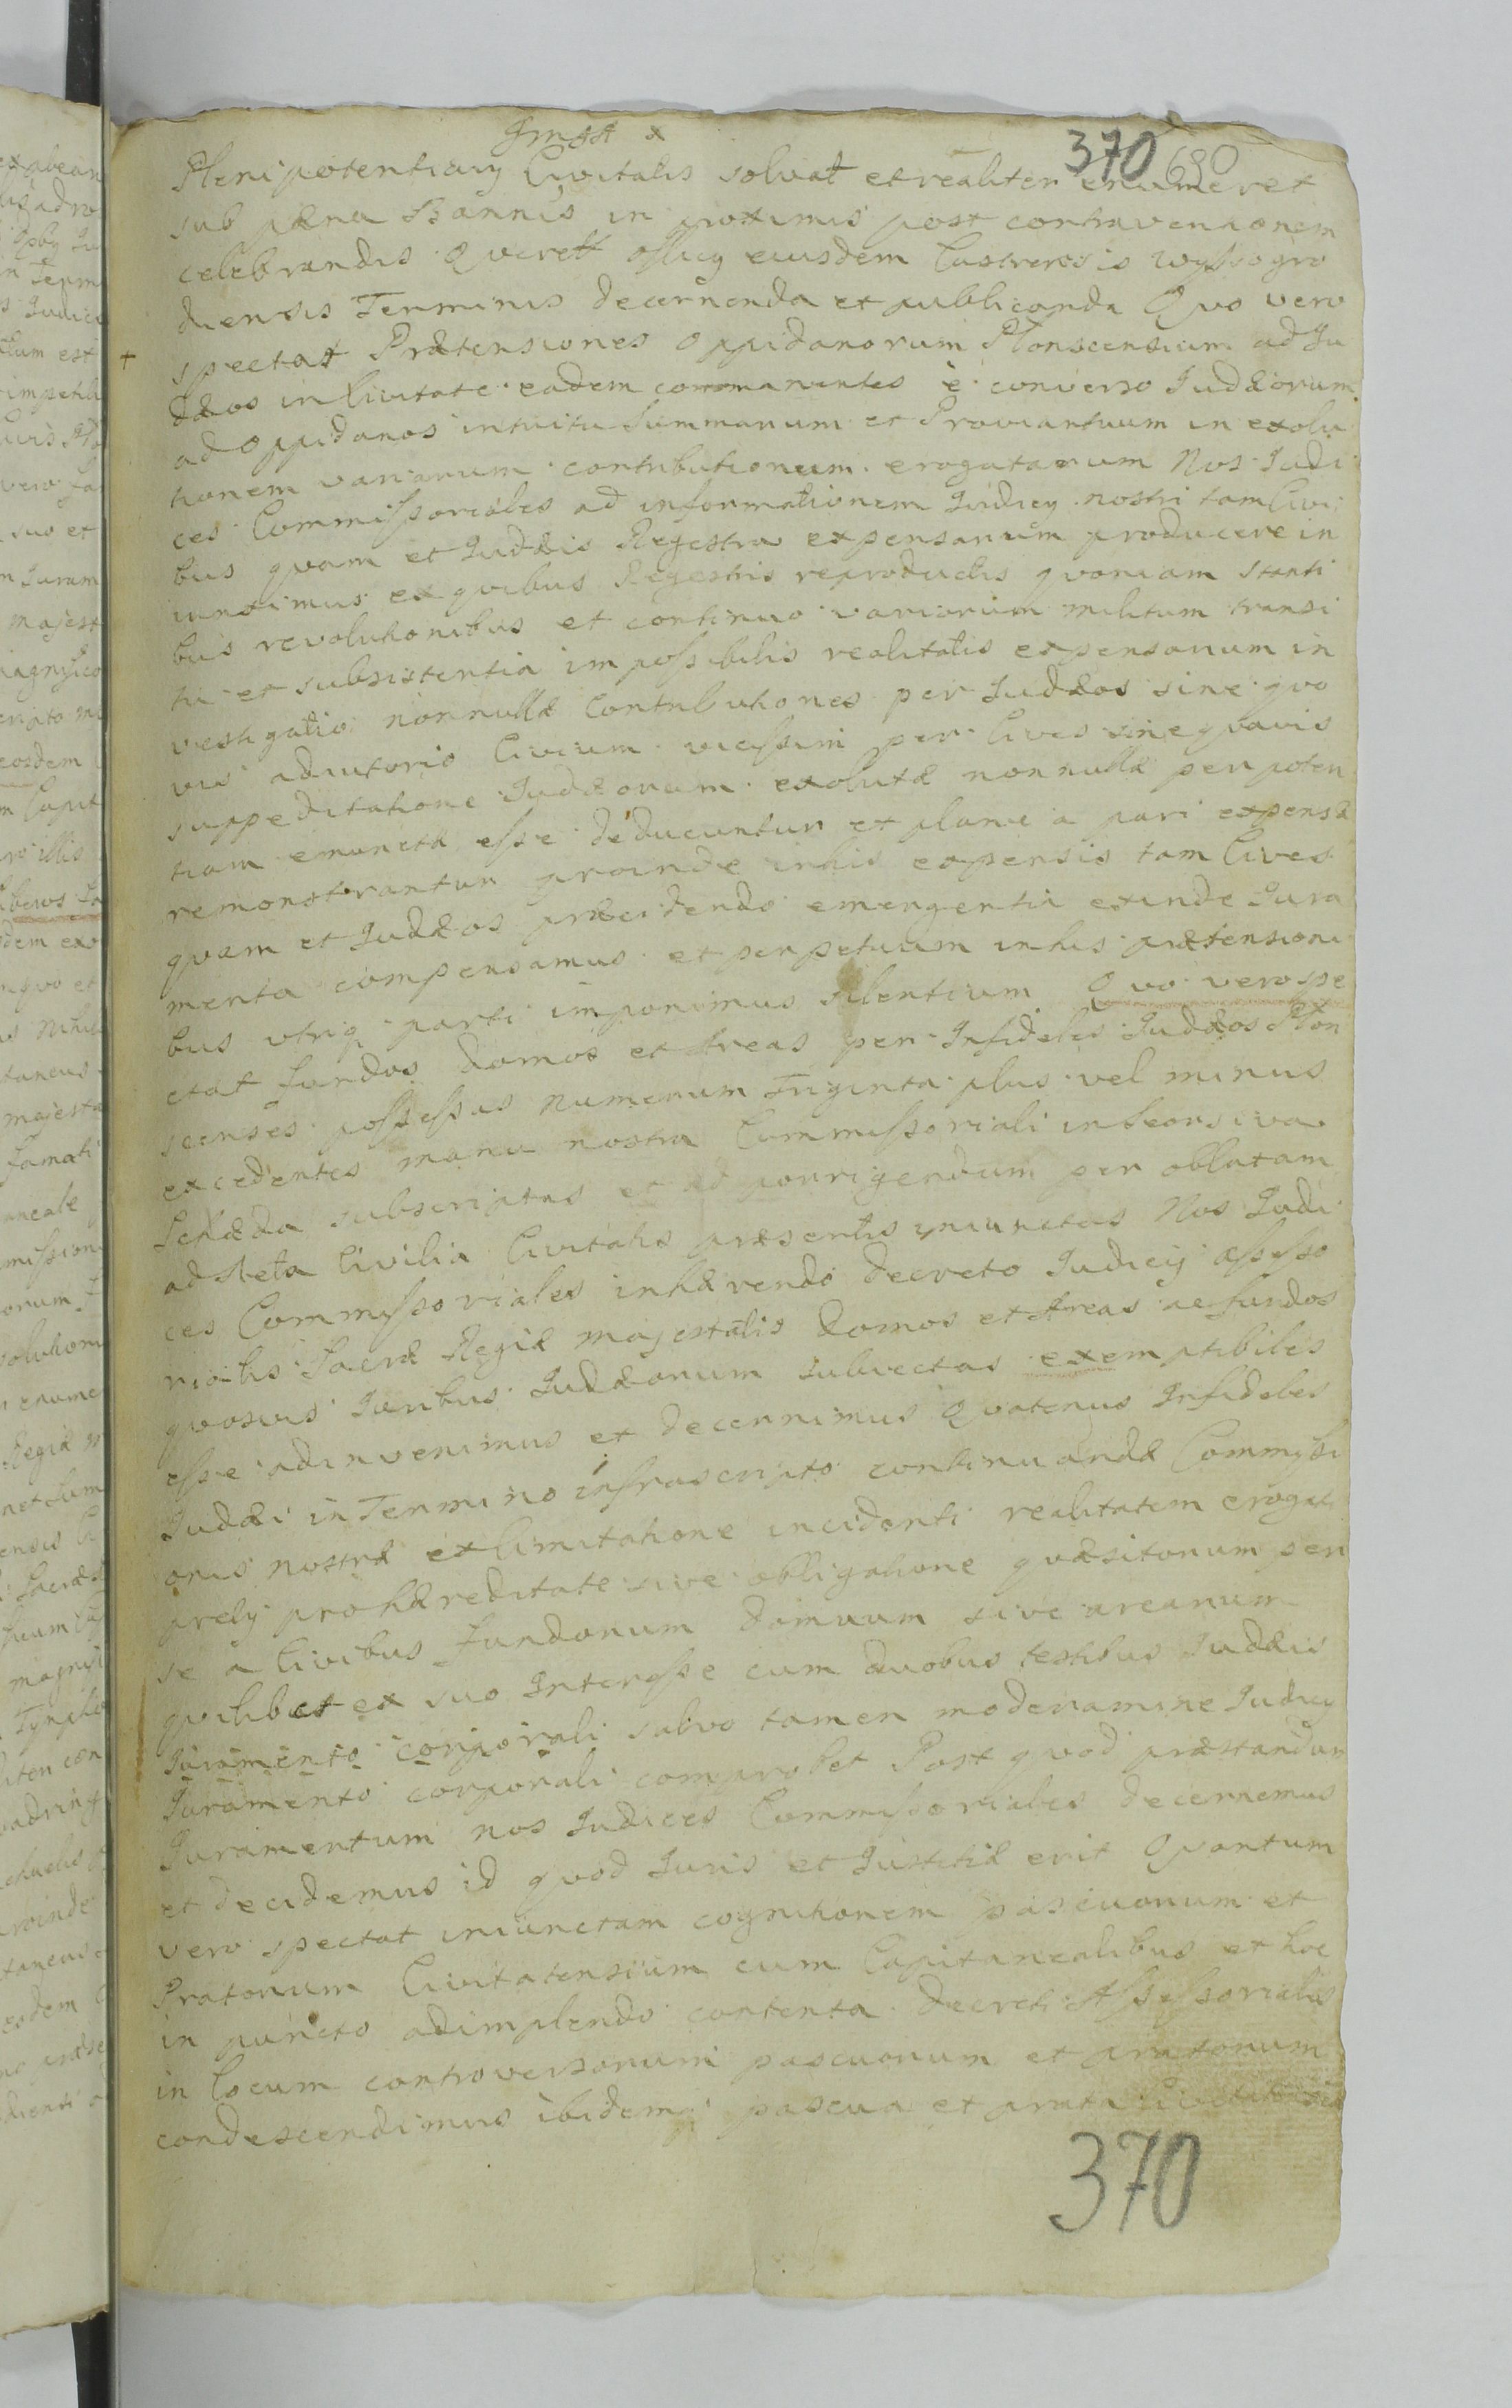 370 680
Plenipotentiarij Civitatis solvat et realiter enumeret
sub pæna Bannis in proximis post contravenaonem
celebrandis Querell officij eiusdem Castrensis Wyssogro
diensis Terminis decernenda et publicanda Quo vero
+ spectat Prætensiones Oppidanorum Płonscensium ad Ju
dæos in Civitate eadem commanentes è converso Judæorum
ad Oppidanos intuitu Summarum et Proviantuum in exolu
tionem variarum contributionum erogatarum Nos Judi
ces Commissoriales ad informationem Judicij nostri tam Civi
bus quam et Judæis Regestra expensarum producere in
iunximus ex quibus Regestris reproductis quoniam stanti
bus revolutionibus et continuo variorum militum transi
tu et subsistentia impossibilis realitatis expensarum in
vestigatio nonnullæ Contributiones per Judæos sine quo
vis adiutorio Civium vicissim per Cives sine quavis
suppeditatione Judæorum exolutæ nonnullæ per poten
tiam emunctæ esse deducuntur et plane a pari expensæ
remonstrantur proinde in his expensis tam Cives
quam et Judæos præcidendo emergentia exinde Jura
menta compensamus et perpetuum in his prætensioni
bus utriq parti imponimus silentium Quo vero spe
ctat fundos domos et Areas per Infideles Judæos Płon
scenses possessas numerum Triginta plus vel minus
excedentes manu nostra Commissoriali in seorsiva
Schæda subscriptas et ad porrigendum per oblatam
ad Acta Civilia Civitatis præsentis iniunctas Nos Judi
ces Commissoriales inhærendo Decreto Judicij assesso
rialis Sacræ Regiæ Majestatis domos et Areas ac fundos
quosvis Juribus Judæorum subiectas exemptibiles
esse adinvenimus et decernimus Quatenus Infideles
Judæi in Termino infrascripto continuandæ Commissi
onis nostræ ex limitatione incidenti realitatem erogati
prety pro hæreditate sive obligatione quæsitorum per
se a Civibus fundorum domuum sive arearum
quilibet ex suo Interesse cum duobus testibus Judæis
Juramento corporali salvo tamen moderamine Judicij
Juramento corporali comprobet Post quod præstandum
Juramentum nos Judices Commissoriales decernemus
et decidemus id quod Juris et Justitiæ erit Quantum
vero spectat iniunctam cognitionem pascuorum et
Pratorum Civitatensium cum Capitanealibus et hoc
in puncto adimplendo contenta Decreti Assessorialis
in locum controversorum pascuorum et pratorum
condescendimus ibidem pascua et prata Civitatensia
370